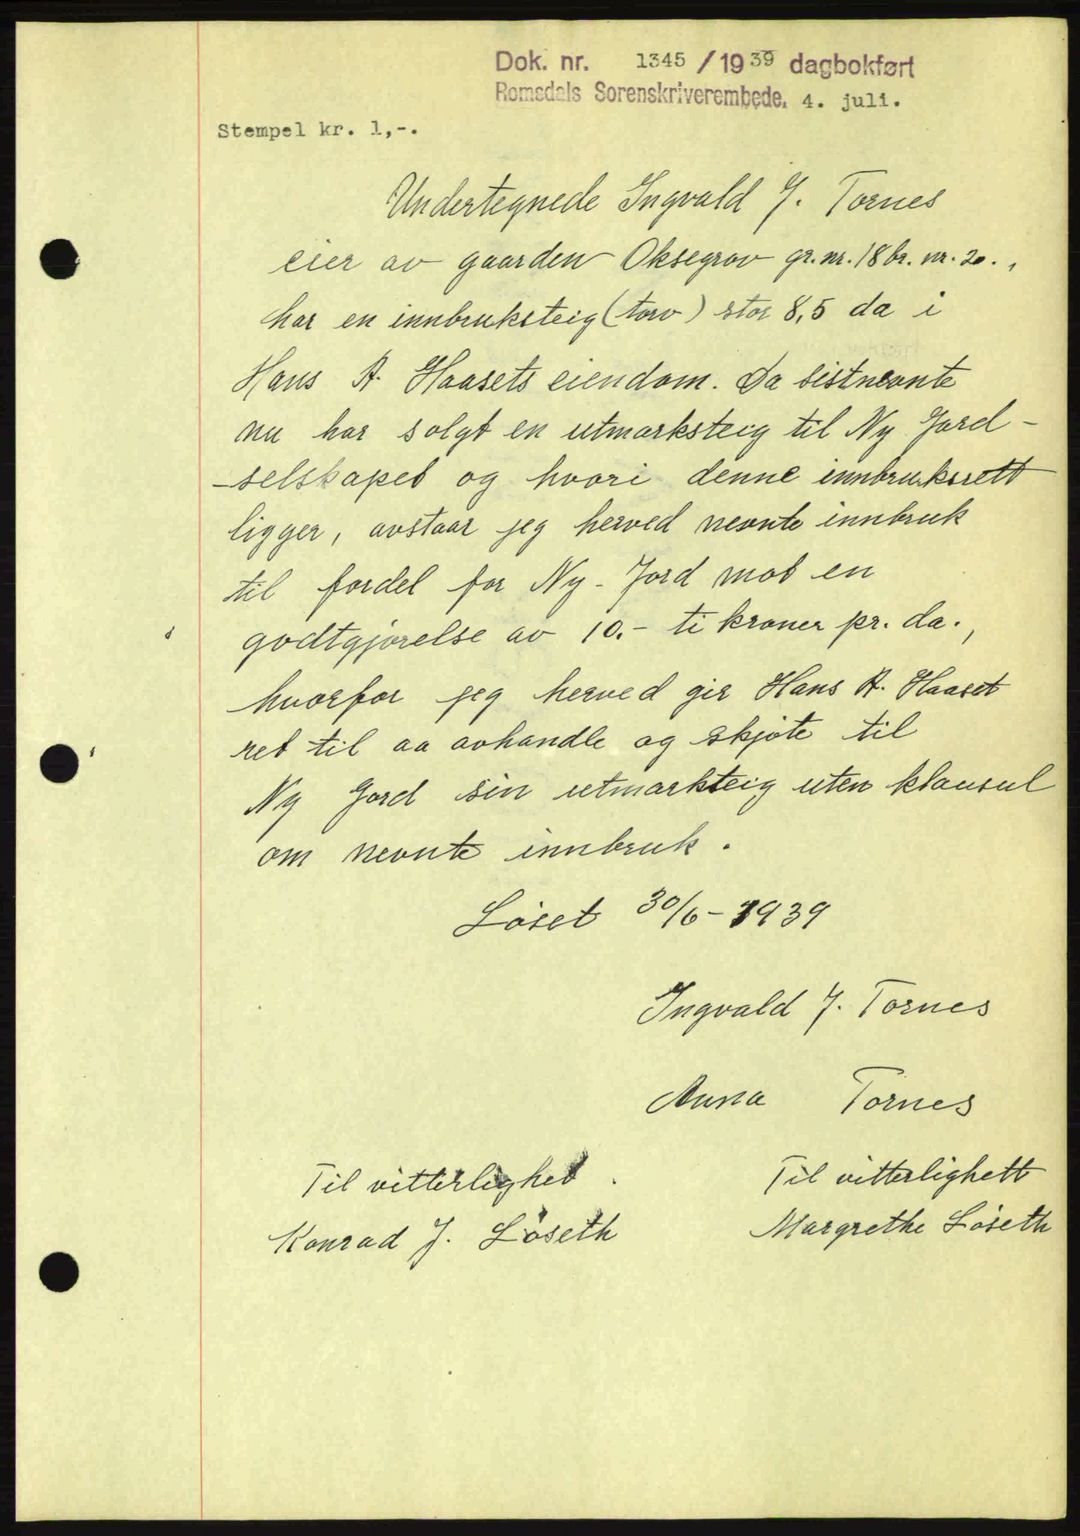 Dok. nr. 1345 / 1939 dagbokført
Romsdals Sorenskriverembede, 4. juli.
Stempel kr. 1,-.
Undertegnede Ingvald J. Tornes
eier av gaarden Oksegrav gr.nr. 18 br. nr. 20.,
har en innbruksteig (torv) stor 8,5 da i
Hans A. Haasets eiendom. Da sistnevnte
nu har solgt en utmarksteig til Ny Jord -
-selskapet og hvori denne innbruksrett
ligger, avstaar jeg herved nevnte innbruk
til fordel for Ny - Jord mot en
godtgjørelse av 10.- ti kroner pr. da.,
hvorfor jeg herved gir Hans A. Haaset
ret til aa avhandle og skjøte til
Ny Jord sin utmarkteig uten klausul
om nevnte innbruk.
Løset 30/6 - 1939
Ingvald J. Tornes
Anna Tornes
Til vitterlighet.
Til vitterlighett
Konrad J. Løseth
Margrethe Løseth